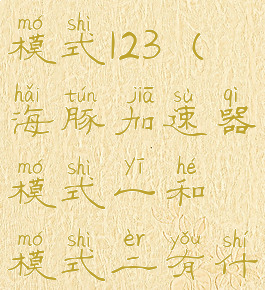 mó shì
模式123（
hǎi tún jiā sù qì
海豚加速器
mó shì yī hé
模式一和
mó shì èr yǒu shí
模式二有什